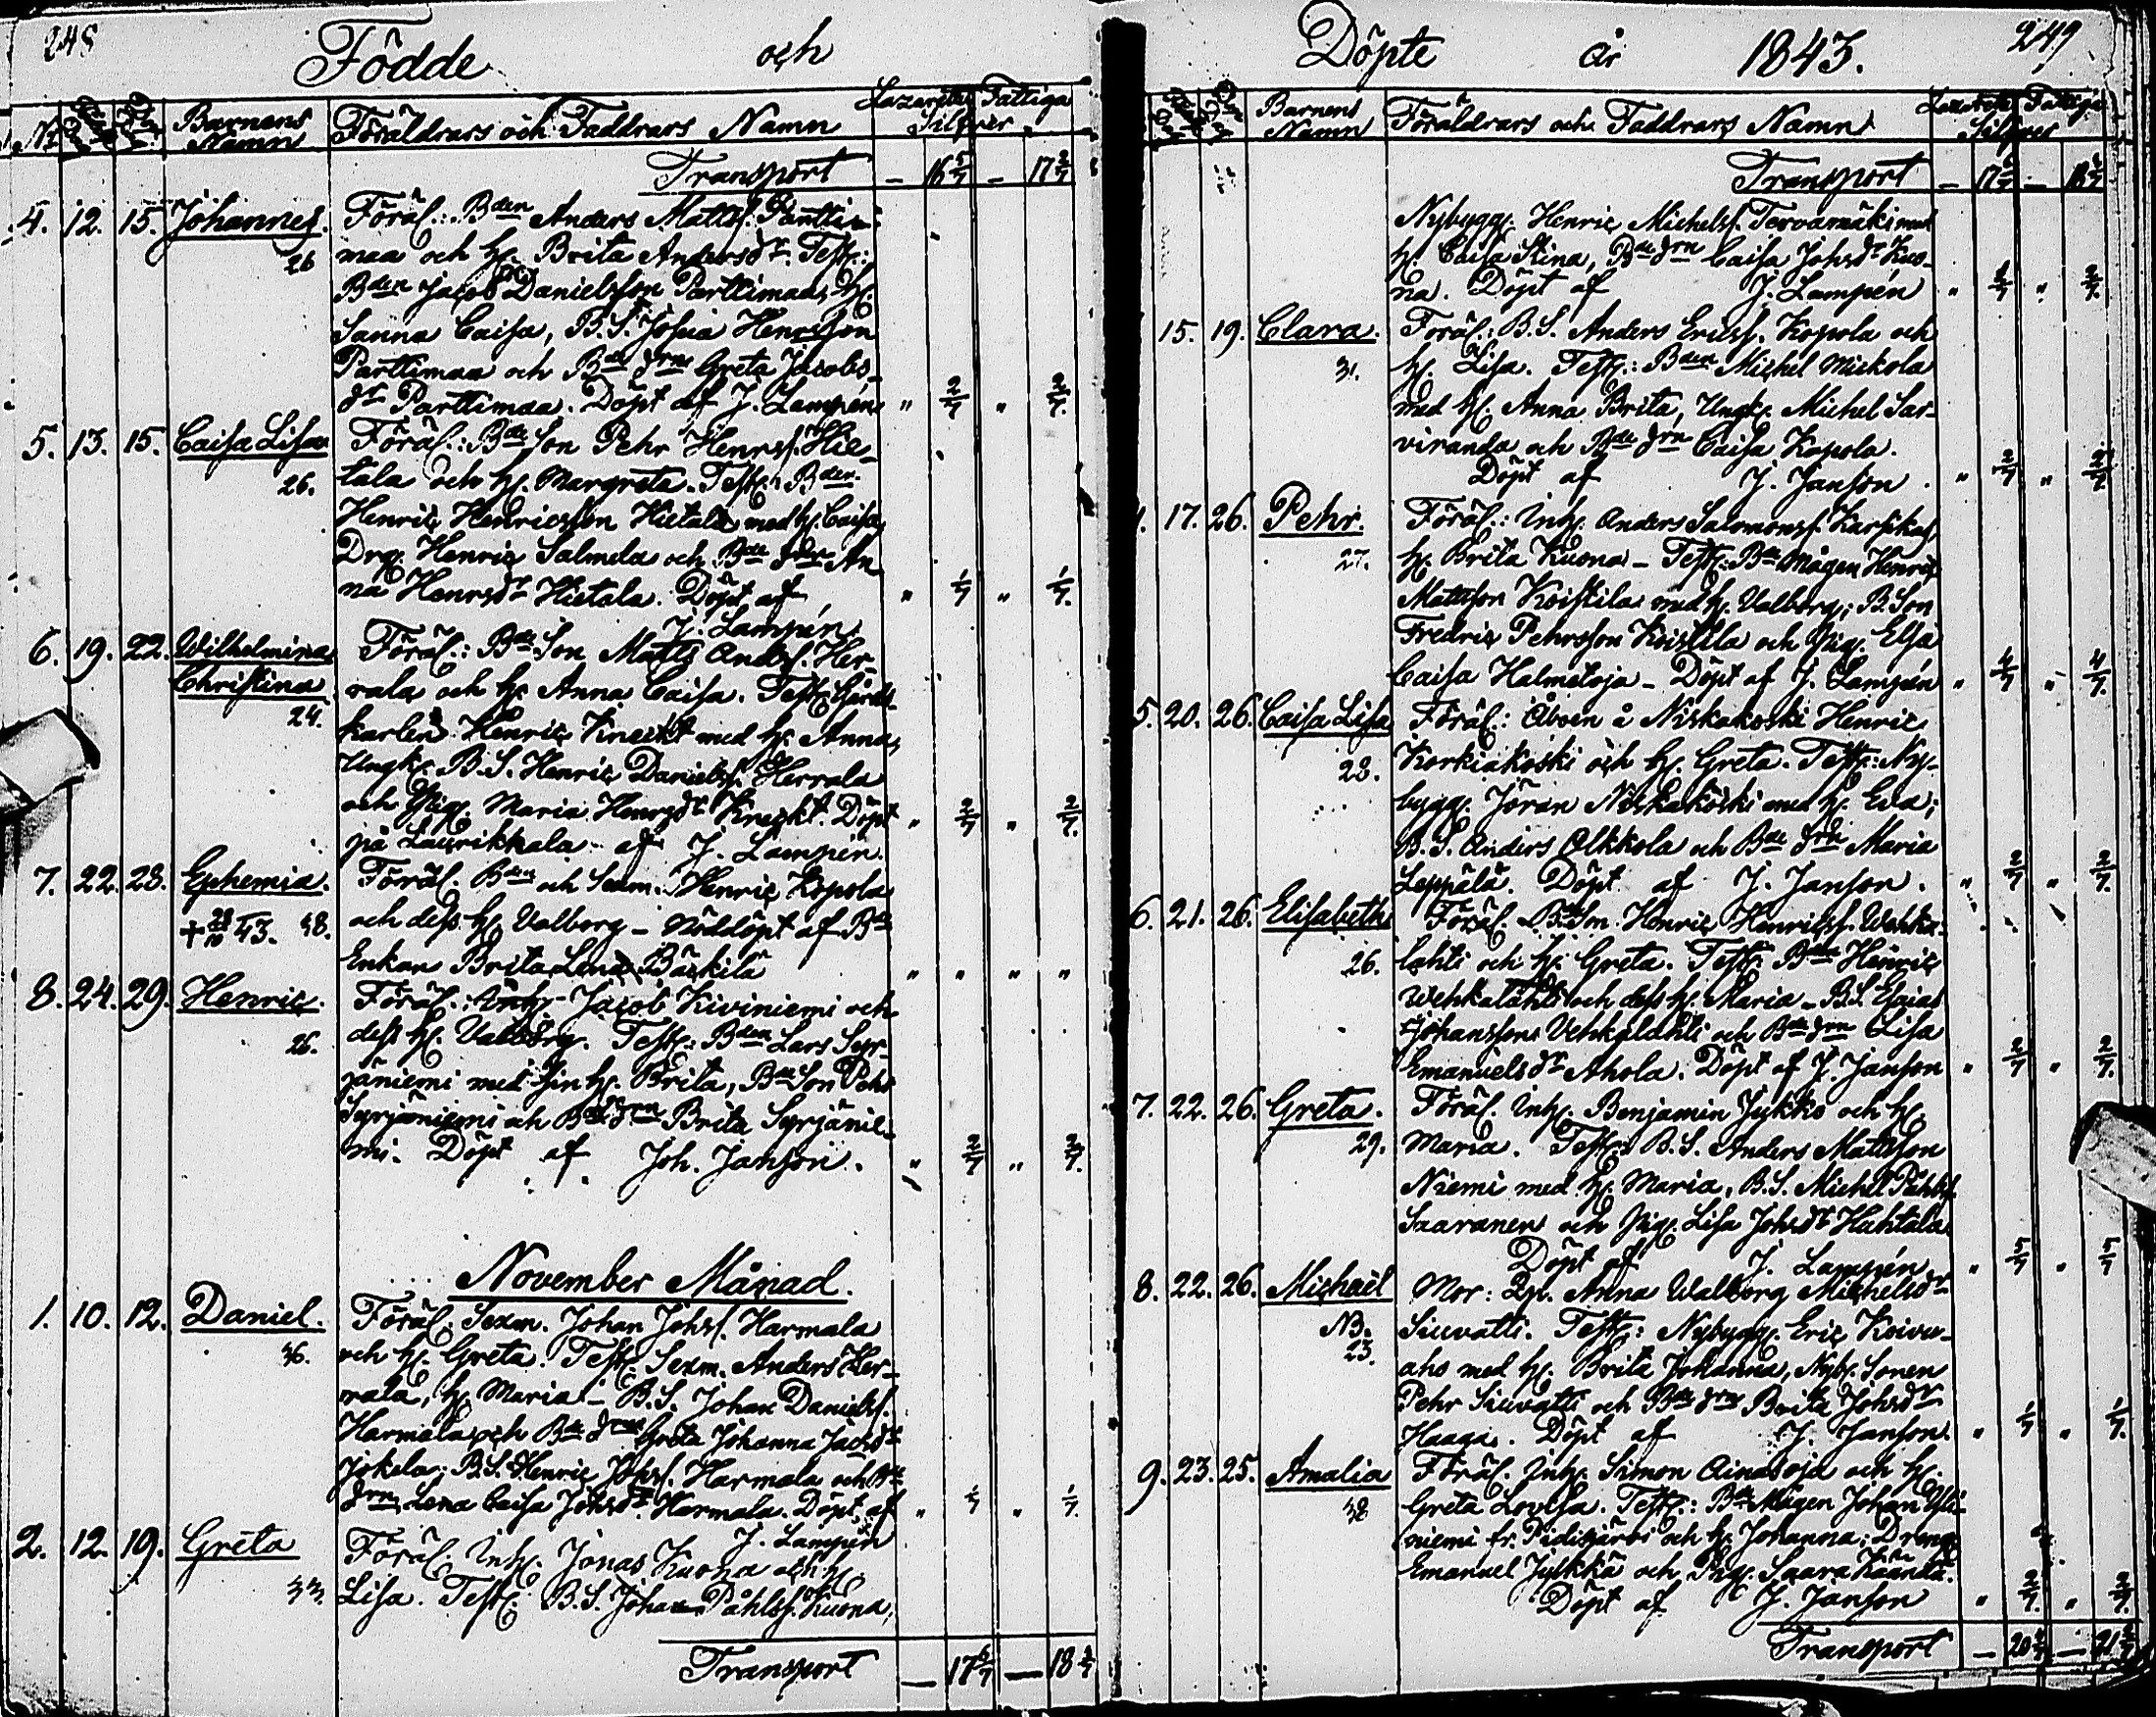 248
Födde och
Nr Barnens Namn Föräldrars och Faddrars Namn Lazarettet Fattiga Silfver
Transport — 16 5/7 — 17 2/7
4. 12. 15. Johannes. Föräl: Bden Anders Mattss. Parttim-
26 maa och h. Brita Andersdr. Test:
Bden Jacob Danielsson Parttimaa, h.
Sanna Caisa, B.S. Josua Henrsson
Parttimaa och Bde drn Greta Jacobs-
dr Parttimaa. Döpt af J. Lampén " 2/7 " 2/7.
5. 13. 15. Caisa Lisa Föräl: Bde Son Pehr Henrss. Hie-
26. tala och h. Margreta. Test: Bden
Henric Henricsson Hietala med h. Caisa,
Drg. Henric Salmela och Bde drn An-
na Henrsdr Hietala. Döpt af " 1/7 " 1/7.
J. Lampén.
6. 19. 22. Wilhelmina Föräl: Bde Son Matts Anderss. Her-
Christina rala och h. Anna Caisa. Test:
24. karlen Henric Kneckt med h. Anna,
Ungk. B.S. Henric Danielss. Herrala
och Pig. Maria Henrsdr Kneckt. Döpt " 2/7 " 2/7.
på Laurikkala af J. Lampén.
7. 22. 28. Ephemia. Föräl. Bden och Sexm. Henric Kopola
+ 28/10 43. 38. och dess h. Valborg — Nöddöpt af Bde
Enkan Brita Lena Bäckilä " " " "
8. 24. 29. Henric. Föräl: Inh. Jacob Kiviniemi och
26. dess h. Valborg. Test: Bden Lars Syr-
jäniemi med sin h. Brita, Bde Son Pehr
Syrjäniemi och Bde drn Brita Syrjänie-
mi. Döpt af Joh. Janson. " 2/7 " 2/7.
November Månad.
1. 10. 12. Daniel. Föräl: Sexm. Johan Johss. Harmala
36. och h. Greta. Test: Sexm. Anders Her-
mala, h. Maria — B.S. Johan Danielss.
Harmala och Bde drn Greta Johanna Jacsdr
Jokela; B.S. Henric Johss. Harmala och Bde
drn Lena Caisa Johsdr Harmala. Döpt af " 1/7 " 1/7.
J. Lampén
2. 12. 19. Greta Föräl. Inh. Jonas Kuona och h.
33. Lisa. Test: B.S. Johan Påhlss. Kuona,
Transport — 17 6/7 — 18 3/7
249
Döpte år 1843.
Barnens Namn Föräldrars och Faddrars Namn Lazarett Fattiga Silfver
Transport — 17 6/7 — 18 3/7
Nybygg. Henric Michelss. Tervamäki med
h. Caisa Stina, Bde drn Caisa Johsdr Kuo-
na. Döpt af J. Lampén " 2/7 " 2/7.
15. 19. Clara. Föräl: B.S. Anders Ericss. Kopola och
31. h. Lisa. Test: Bden Michel Mickola
med h. Anna Brita, Ungk. Michel Sar-
viranda och Bde drn Caisa Kopola.
Döpt af J. Janson. " 2/7 " 2/7.
4. 17. 26. Pehr. Föräl: Inh. Anders Salomonss. Karsikas,
27. h. Brita Kuona — Test: Bde Mågen Henric
Mattsson Koistila med h. Valborg; B. Son
Fredric Pehrsson Koistila och Pig. Elsa
Caisa Halmetoja — Döpt af J. Lampén " 4/7 " 4/7.
5. 20. 26. Caisa Lisa Föräl: Åboen å Niskakoski Henric
28. Korkiakoski och h. Greta. Test: Ny-
bygg. Jöran Niskakoski med h. Eva;
B.S. Anders Olkkola och Bde drn Maria
Leppälä. Döpt af J. Janson. " 2/7 " 2/7.
6. 21. 26. Elisabeth Föräl. Bde Sn. Henric Henricss. Wehka-
26. lahti och h. Greta. Test: Bden Henric
Wehkalahti och dess h. Maria — B.S. Esaias
Johansson Vehkalahti och Bde drn Lisa
Emanuelsdr Ahola. Döpt af J. Janson " 2/7 " 2/7.
7. 22. 26. Greta. Föräl. Inh. Benjamin Jykko och h.
29. Maria. Test: B.S. Anders Mattsson
Niemi med h. Maria, B.S. Michel Påhlss.
Saaranen och Pig. Lisa Johsdr Hahtala
Döpt af J. Lampén " 5/7 " 5/7
8. 22. 26. Michaël Mor: Qp. Anna Walborg Michelsdr
NB. Siuvatti. Test: Nybygg. Eric Koivu-
23. aho med h. Brita Johanna, Nyb. Sonen
Pehr Siuvatti och Bde drn Brita Johsdr
Haaga. Döpt af J. Janson. " 1/7 " 1/7.
9. 23. 25. Amalia Föräl. Inh. Simon Ainasoja och h.
38 Greta Lovisa. Test: Bde Mågen Johan Yli-
niemi fr. Pidisjärvi och h. Johanna; Dreng
Emanuel Jylkkä och Pig. Saara Käänta.
Döpt af J. Janson " 2/7. " 2/7.
Transport — 20 4/7 — 21